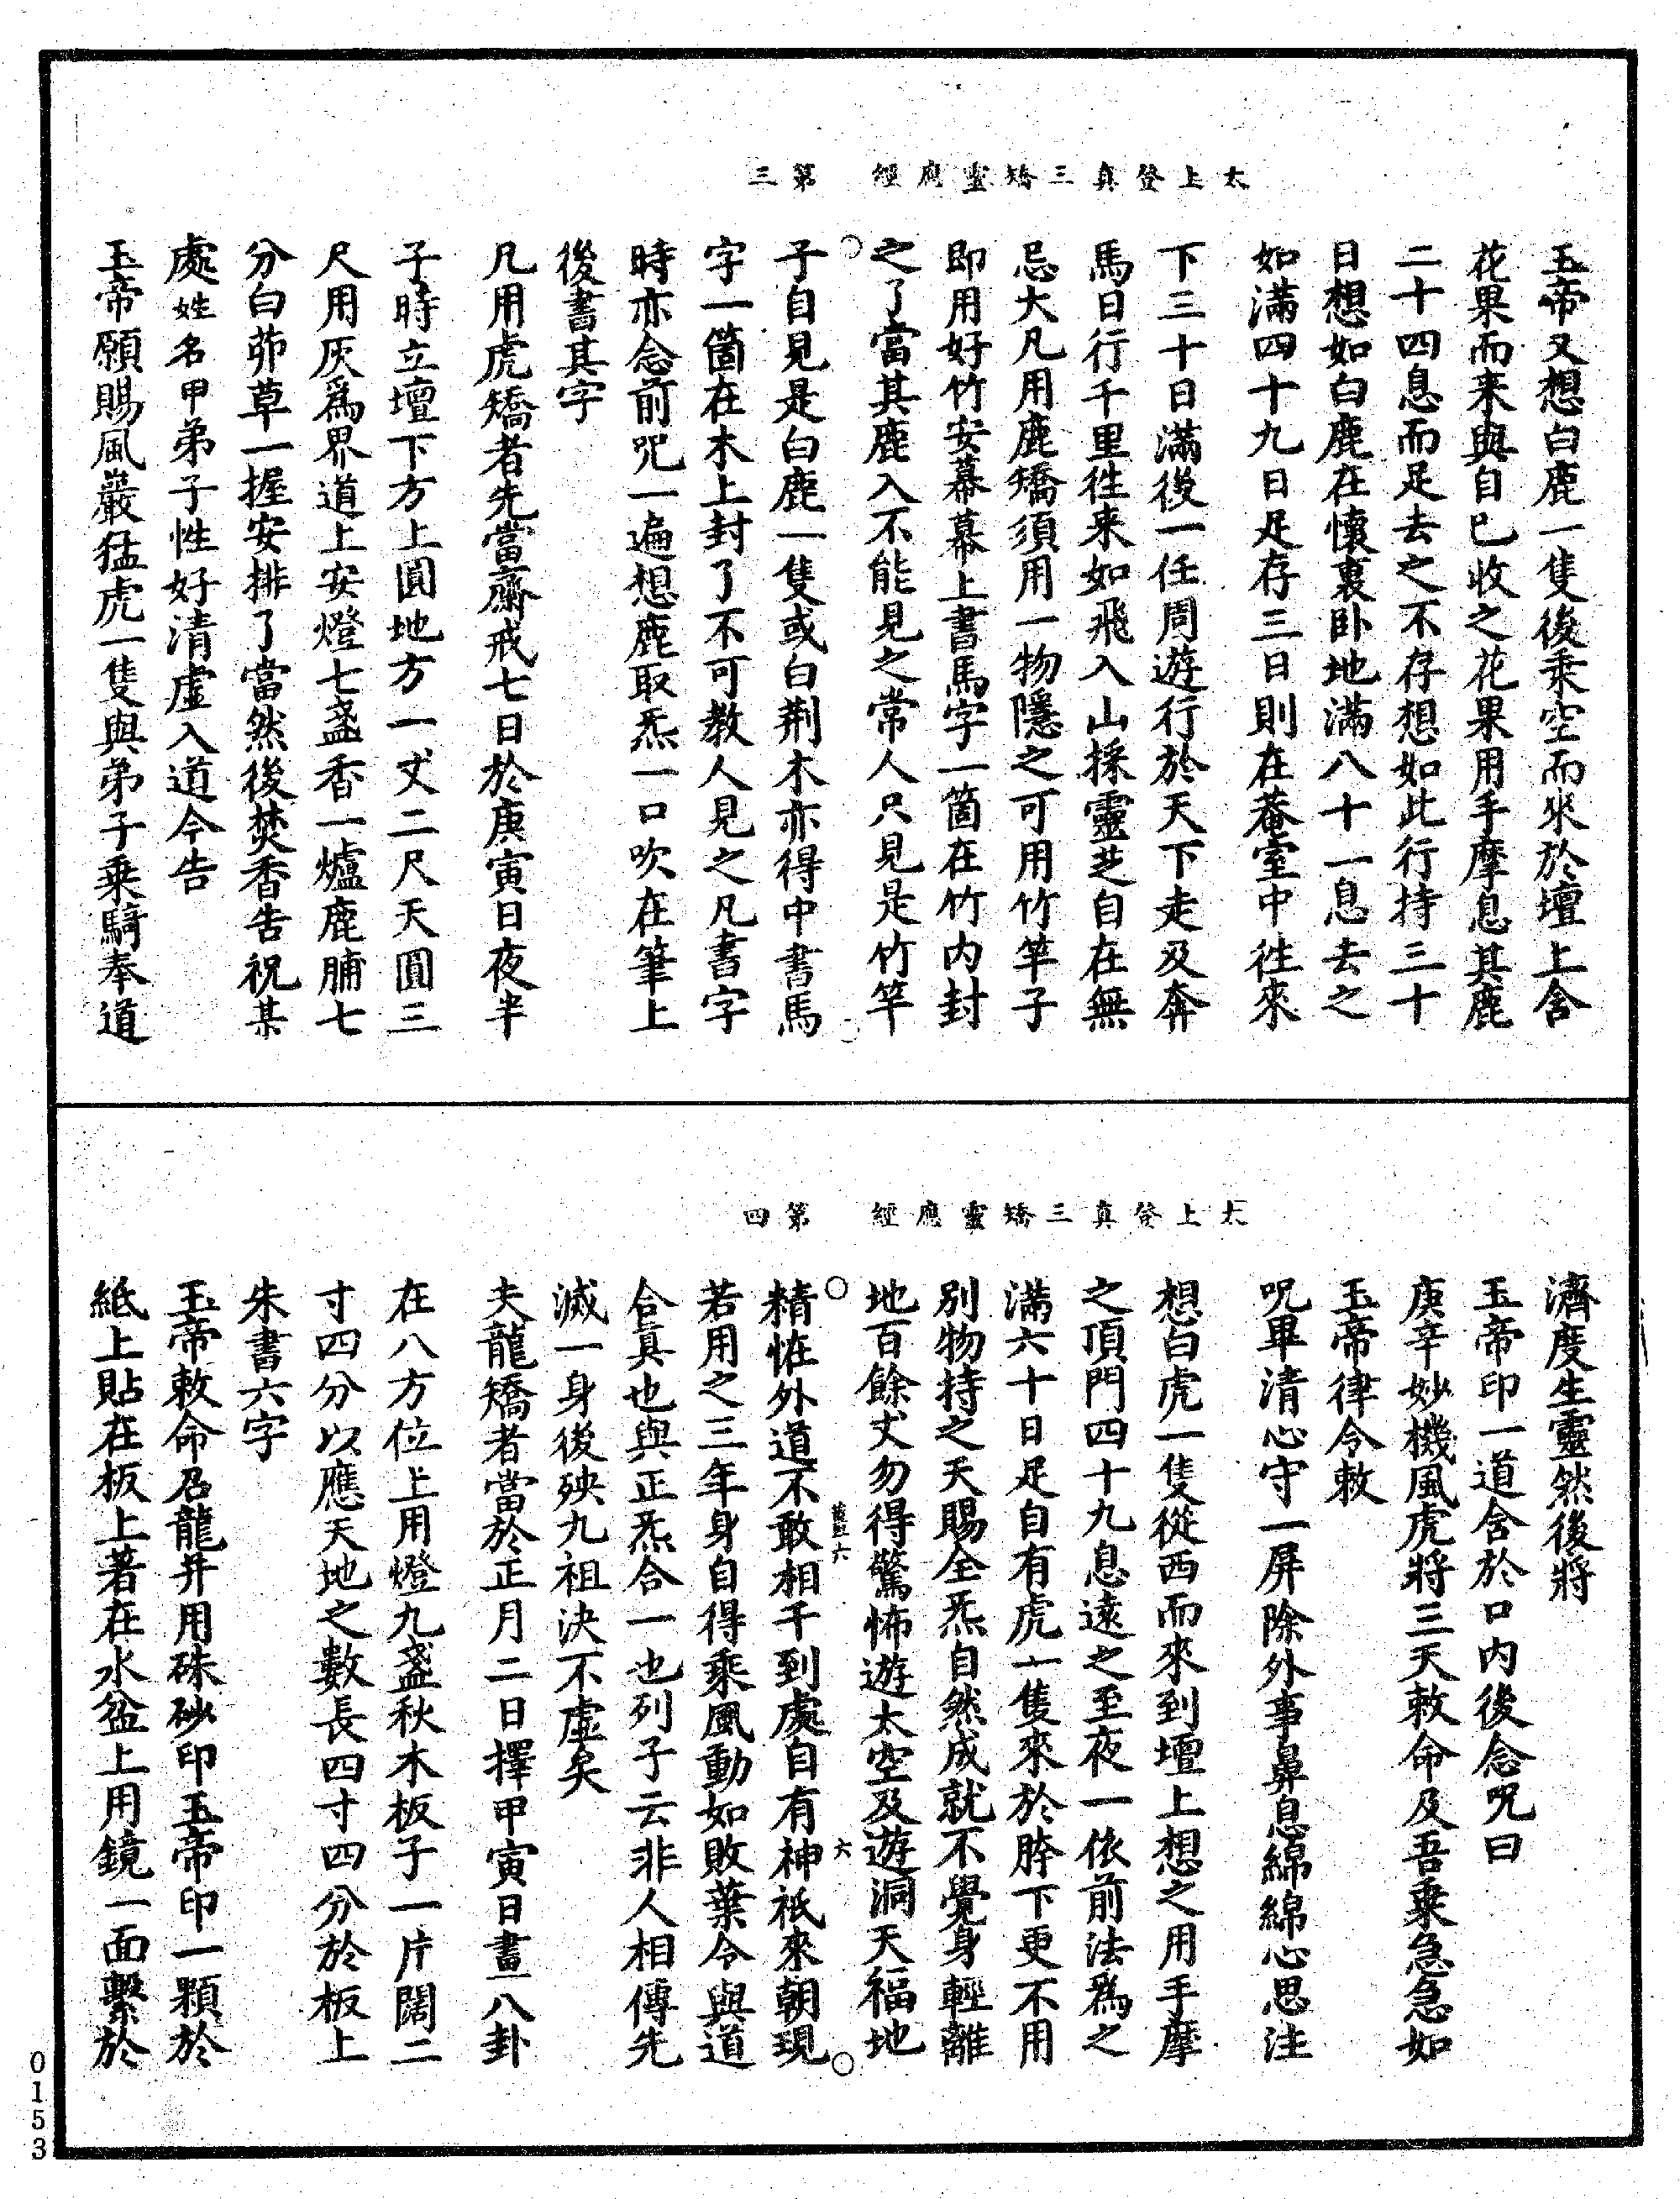 太上登真三矯靈應經　第三
玉帝又想白鹿一隻後乘空而來於壇上含
花果而来與自己收之花果用手摩息其鹿
二十四息而足去之不存想如此行持三十
日想如白鹿在懷裏卧地滿八十一息去之
如滿四十九日足存三日則在菴室中徃來
下三十日滿後一任周遊行於天下走及奔
馬日行千里徃来如飛入山採靈芝自在無
忌大凡用鹿矯須用一物隱之可用竹竿子
即用好竹安幕幕上書馬字一箇在竹内封
之了當其鹿入不能見之常人只見是竹竿
子自見是白鹿一隻或白荆木亦得中書馬
字一箇在木上封了不可教人見之凡書字
時亦念前咒一遍想鹿取炁一口吹在筆上
後書其字
凡用虎矯者先當齋戒七日於庚寅日夜半
子時立壇下方上圓地方一丈二尺天圓三
尺用灰爲界道上安燈七盞香一爐鹿脯七
分白茆草一握安排了當然後焚香告祝某
處姓名甲弟子性好清虛入道今告
玉帝願賜風巖猛虎一隻與弟子乗騎奉道
太上登真三矯靈應經　第四
濟度生靈然後將
玉帝印一道含於口内後念咒曰
庚辛妙機風虎將三天敕命及吾乗急急如
玉帝律令敕
咒畢清心守一屏除外事鼻息綿綿心思注
想白虎一隻從西而來到壇上想之用手摩
之頂門四十九息遠之至夜一依前法爲之
滿六十日足自有虎一隻來於脺下更不用
別物持之天賜全炁自然成就不覺身輕離
地百餘丈勿得驚怖遊太空及遊洞天福地
精恠外道不敢相干到處自有神祇來朝現
若用之三年身自得乘風動如敗葉令與道
合真也與正炁合一也列子云非人相傳先
滅一身後殃九祖決不虛矣
夫龍矯者當於正月二日擇甲寅日畫八卦
在八方位上用燈九盞秋木板子一片闊二
寸四分以應天地之數長四寸四分於板上
朱書六字
玉帝敕命召龍并用硃砂印玉帝印一顆於
紙上貼在板上著在水盆上用鏡一面繫於
六
0153